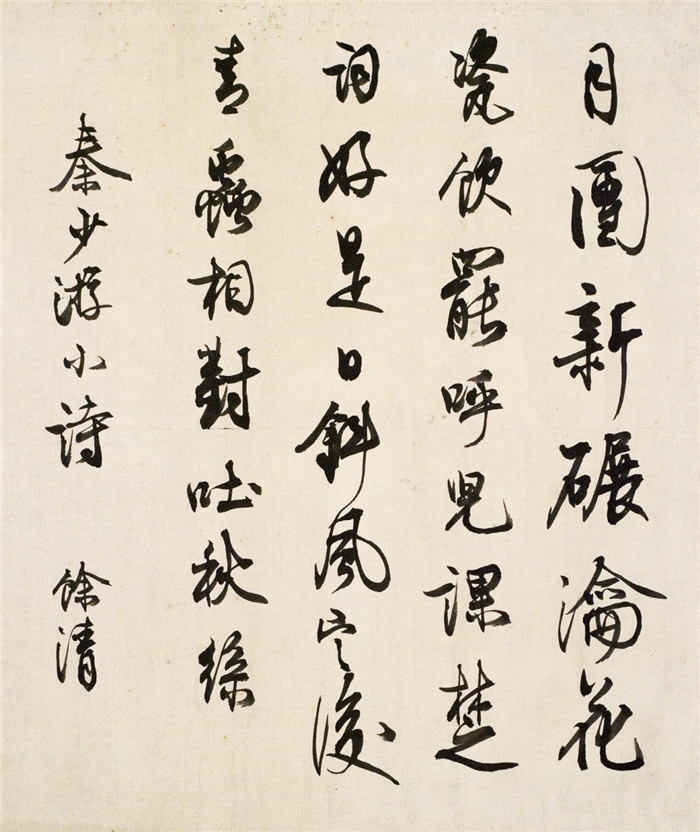 月團新碾瀹花
瓷飲罷呼兒課楚
詞好是日斜風定後
青蟲相對吐秋絲
秦少游小詩 餘清